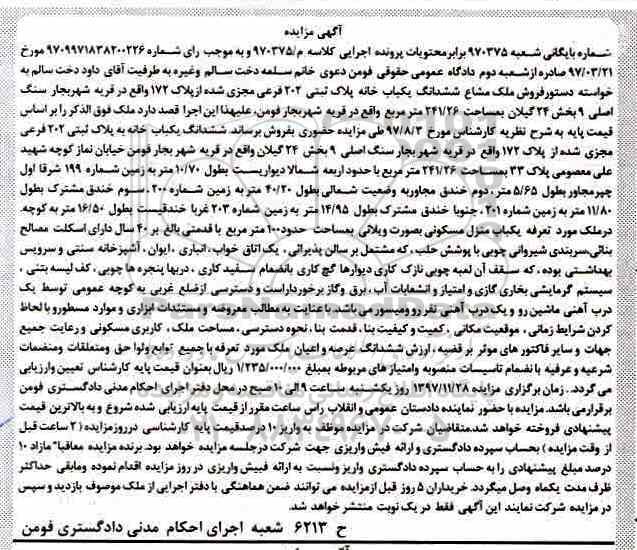 آگهی مزایده
شماره بایگانی شعبه ۹۷۰۳۷۵ برابر محتویات پرونده اجرایی کلاسه م/۹۷۰۳۷۵ و به موجب رای شماره ۹۷۰۹۹۷۱۸۳۸۲۰۰۲۲۶ مورخ
۹۷/۰۳/۲۱ صادره از شعبه دوم دادگاه عمومی حقوقی فومن دعوی خانم سلمه دخت سالم وغیره به طرفیت آقای داود دخت سالم به
خواسته دستور فروش ملک مشاع ششدانگ یکباب خانه پلاک ثبتی ۲۰۲ فرعی مجزی شده از پلاک ۱۷۲ واقع در قریه شهر بجار سنگ
اصلی ۹ بخش ۲۴ گیلان بمساحت ۲۴۱/۲۶ متر مربع واقع در قریه شهر بجار فومن، علیهذا این اجرا قصد دارد ملک فوق الذکر را بر اساس
قیمت پایه به شرح نظریه کارشناس مورخ ۹۷/۸/۳ طی مزایده حضوری بفروش برساند. ششدانگ یکباب خانه به پلاک ثبتی ۲۰۲ فرعی
مجزی شده از پلاک ۱۷۲ واقع در قریه شهر بجار سنگ اصلی ۹ بخش ۲۴ گیلان واقع در قریه شهر بجار فومن خیابان نماز کوچه شهید
علی معصومی پلاک ۳۳ بمساحت ۲۴۱/۲۶ متر مربع با حدود اربعه شمالا دیواریست بطول ۱۰/۷۰ متر به زمین شماره ۱۹۹ شرقا اول
چپر مجاور بطول ۵/۶۵ متر، دوم خندق مجاور به وضعیت شمالی بطول ۴۰/۲۰ متر به زمین شماره ۲۰۰، سوم خندق مشترک بطول
۱۱/۸۰ متر به زمین شماره ۲۰۱، جنوبا خندق مشترک بطول ۱۴/۹۵ متر به زمین شماره ۲۰۳ غربا خندقیست بطول ۱۶/۵۰ متر به کوچه.
در ملک مورد تعرفه یکباب منزل مسکونی بصورت ویلائی بمساحت حدود ۱۰۰ متر مربع با قدمتی بالغ بر ۴۰ سال دارای اسکلت مصالح
بنائی، سربندی شیروانی چوبی با پوشش حلب، که مشتمل بر سالن پذیرائی، یک اتاق خواب، انباری، ایوان، آشپزخانه سنتی و سرویس
بهداشتی بوده، که سقف آن لمبه چوبی نازک کاری دیوارها گچ کاری بانضمام سفید کاری، دربها پنجره ها چوبی، کف لیسه بتنی،
سیستم گرمایشی بخاری گازی و امتیاز و انشعابات آب، برق و گاز برخوردار است و دسترسی از ضلع غربی به کوچه عمومی توسط یک
درب آهنی ماشین رو و یک درب آهنی نفر رو ومیسور می باشد. با عنایت به مطالب معروضه و مستندات ابزاری و موارد مسطور و با لحاظ
کردن شرایط زمانی، موقعیت مکانی، کمیت و کیفیت بنا، قدمت بنا، نحوه دسترسی، مساحت ملک، کاربری مسکونی و رعایت جمیع
جهات و سایر فاکتور های موثر بر قضیه، ارزش ششدانگ عرصه و اعیان ملک مورد تعرفه با جمیع توابع ولواحق ومتعلقات ومنضمات
شرعیه و عرفیه با انضمام تاسیسات منصوبه وامتیاز های مربوطه بمبلغ ۱/۲۳۵/۰۰۰/۰۰۰ ریال بعنوان قیمت پایه کارشناس تعیین وارزیابی
می گردد. زمان برگزاری مزایده ۱۳۹۷/۱۱/۲۸ روز یکشنبه ساعت ۹ الی ۱۰ صبح در محل دفتر اجرای احکام مدنی دادگستری فومن
برقرار می باشد. مزایده با حضور نماینده دادستان عمومی و انقلاب راس ساعت مقرر از قیمت پایه ارزیابی شده شروع و به بالاترین قیمت
پیشنهادی فروخته خواهد شد. متقاضیان شرکت در مزایده موظف به واریز ۱۰ درصد قیمت پایه کارشناسی در روز مزایده (۲ ساعت قبل
از وقت مزایده) بحساب سپرده دادگستری و ارائه فیش واریزی جهت شرکت در جلسه مزایده خواهد بود. برنده مزایده معاقبا" مازاد ۱۰
درصد مبلغ پیشنهادی را به حساب سپرده دادگستری واریز ونسبت به ارائه فیش واریزی در روز مزایده اقدام نموده ومابقی حداکثر
ظرف مدت یکماه وصل میگردد. خریداران ۵ روز قبل از مزایده می توانند ضمن هماهنگی با دفتر اجرایی از ملک موصوف بازدید و سپس
در مزایده شرکت نمایند این آگهی فقط در یک نوبت منتشر خواهد شد.
ح ۶۲۱۳ شعبه اجرای احکام مدنی دادگستری فومن